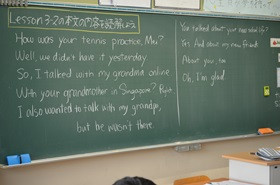 Lesson 3-2の本文の内容を読解しよう
How was your tennis practice, Mei?
Well, we didn't have it yesterday.
So, I talked with my grandma online
With your grandmother in Singapore?
I also wanted to talk with my grandpa,
but he wasn't there
You talked about your
Yes. And about my new friends
About you, too
Oh, I'm glad.